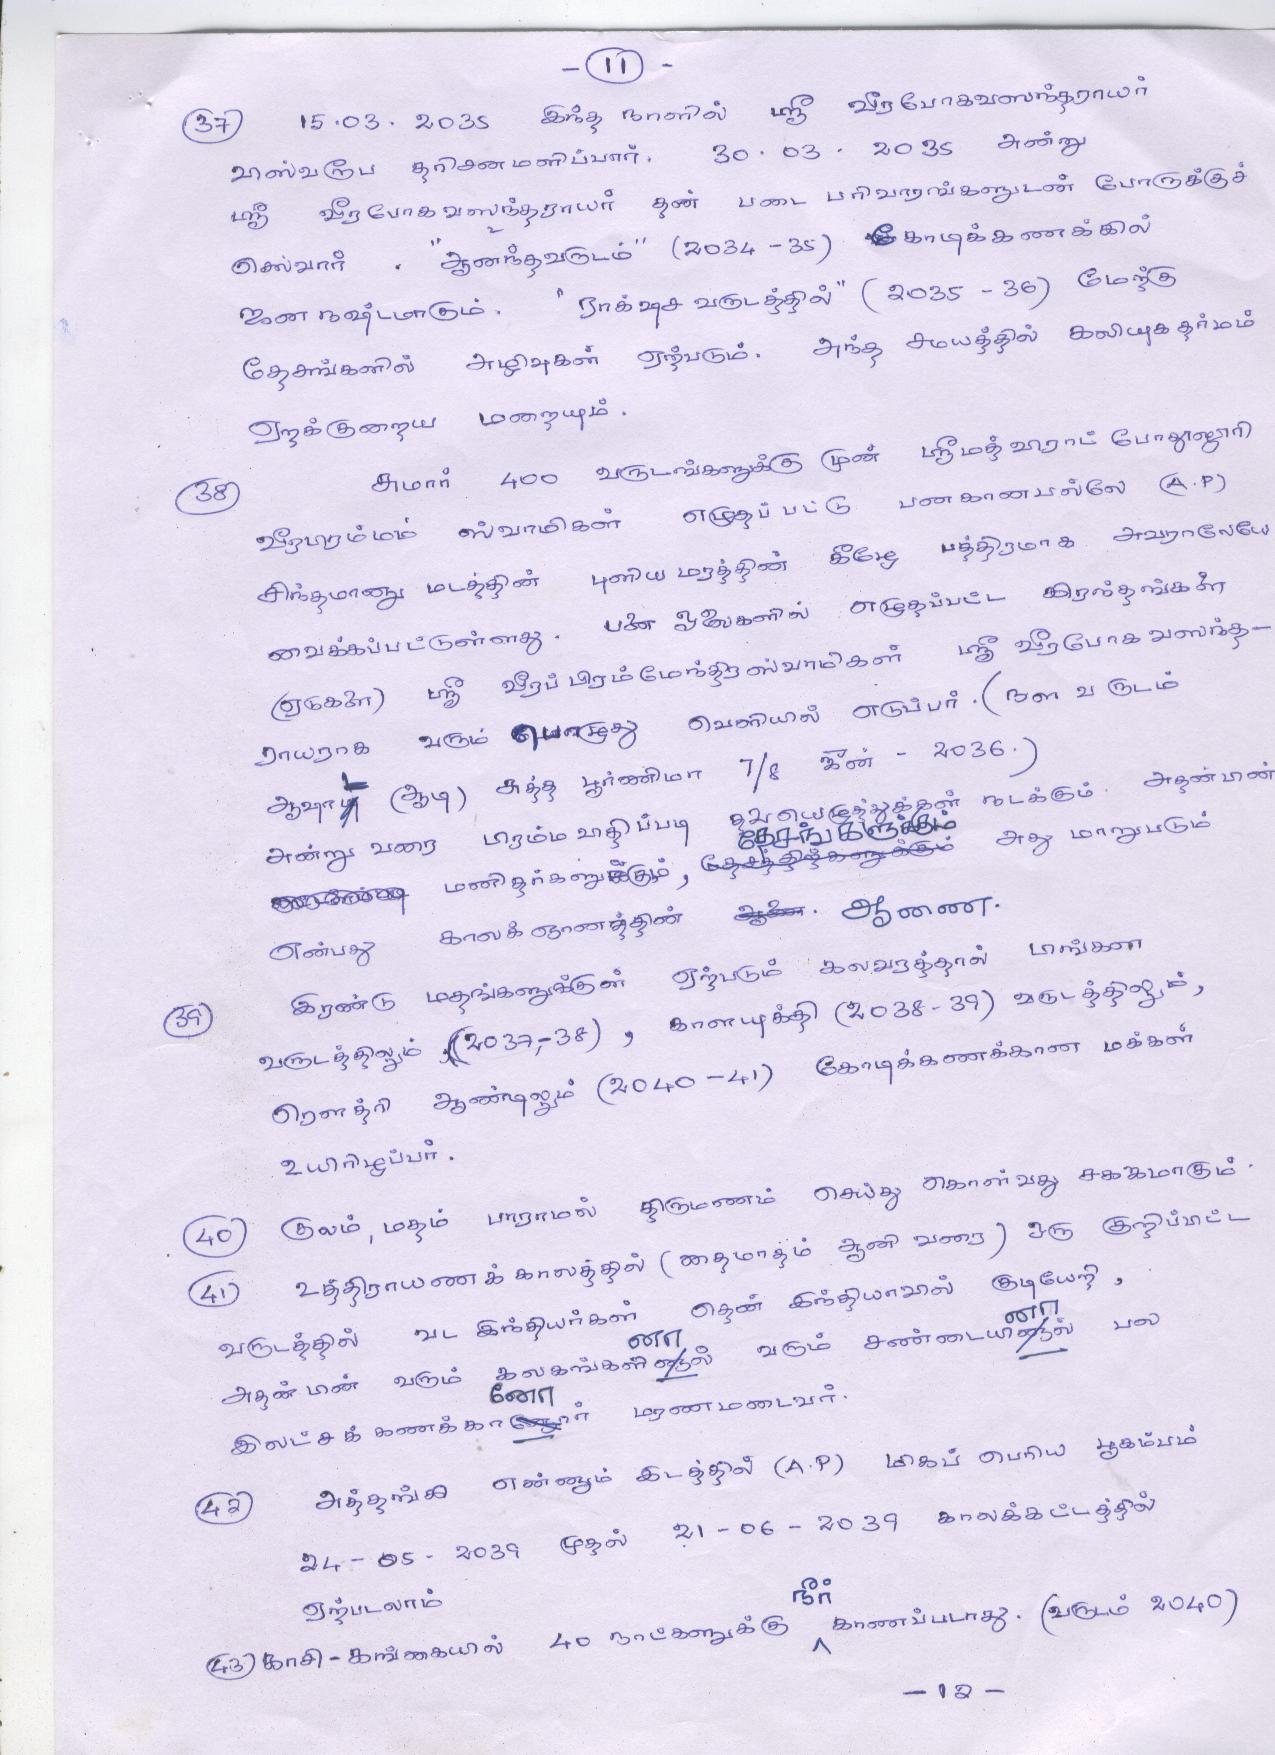 - 11 -
37 15.03.2035 இந்த நாளில் ஸ்ரீ வீரபோகவஸந்தராயர்
விஸ்வரூப தரிசனமளிப்பார். 30.03.2035 அன்று
ஸ்ரீ வீரபோகவஸந்தராயர் தன் படை பரிவாரங்களுடன் போருக்குச்
செல்வார். "ஆனந்தவருடம்" (2034-35) கோடிக்கணக்கில்
ஜன நஷ்டமாகும். "ராக்ஷச வருடத்தில்" (2035-36) மேற்கு
தேசங்களில் அழிவுகள் ஏற்படும். அந்த சமயத்தில் கலியுகதர்மம்
ஏறக்குறைய மறையும்.
38 சுமார் 400 வருடங்களுக்கு முன் ஸ்ரீமத்விராட் போதுலூரி
வீரபிரம்மம் ஸ்வாமிகள் எழுதப்பட்டு பனகானபல்லே (A.P)
சிந்தமானு மடத்தின் புளியமரத்தின் கீழே பத்திரமாக அவராலேயே
வைக்கப்பட்டுள்ளது. பனை ஓலைகளில் எழுதப்பட்ட கிரந்தங்களை
(ஏடுகளை) ஸ்ரீ வீரப்பிரம்மேந்திரஸ்வாமிகள் ஸ்ரீ வீரபோகவஸந்த-
ராயராக வரும் பொழுது வெளியில் எடுப்பர். (நள வருடம்
(ஆடி) சுத்த பூர்ணிமா 7/8 ஜீன் - 2036.)
அன்று வரை பிரம்மவிதிப்படி நடக்கும். அதன்பின்
மனிதர்களுக்கும், தேசங்களுக்கும் அது மாறுபடும்
என்பது காலக்ஞானத்தின் ஆணை.
39 இரண்டு மதங்களுக்குள் ஏற்படும் கலவரத்தால் பிங்கள
வருடத்திலும் (2037-38), காளயுக்தி (2038-39) வருடத்திலும்,
ரௌத்ரி ஆண்டிலும் (2040-41) கோடிக்கணக்கான மக்கள்
உயிரிழப்பர்.
40 குலம், மதம் பாராமல் திருமணம் செய்து கொள்வது சகஜமாகும்.
41 உத்திராயணக் காலத்தில் (தைமாதம் ஆனி வரை) ஒரு குறிப்பிட்ட
வருடத்தில் வட இந்தியர்கள் தென் இந்தியாவில் குடியேறி,
அதன் பின் வரும் கலகங்களினால் வரும் சண்டையினால் பல
இலட்சக்கணக்கானோர் மரணமடைவர்.
42 அத்தங்கி என்னும் இடத்தில் (A.P) மிகப் பெரிய பூகம்பம்
24-05-2039 முதல் 21-06-2039 காலக்கட்டத்தில்
ஏற்படலாம்
43 காசி-கங்கையில் 40 நாட்களுக்கு நீர் காணப்படாது. (வருடம் 2040)
-12-